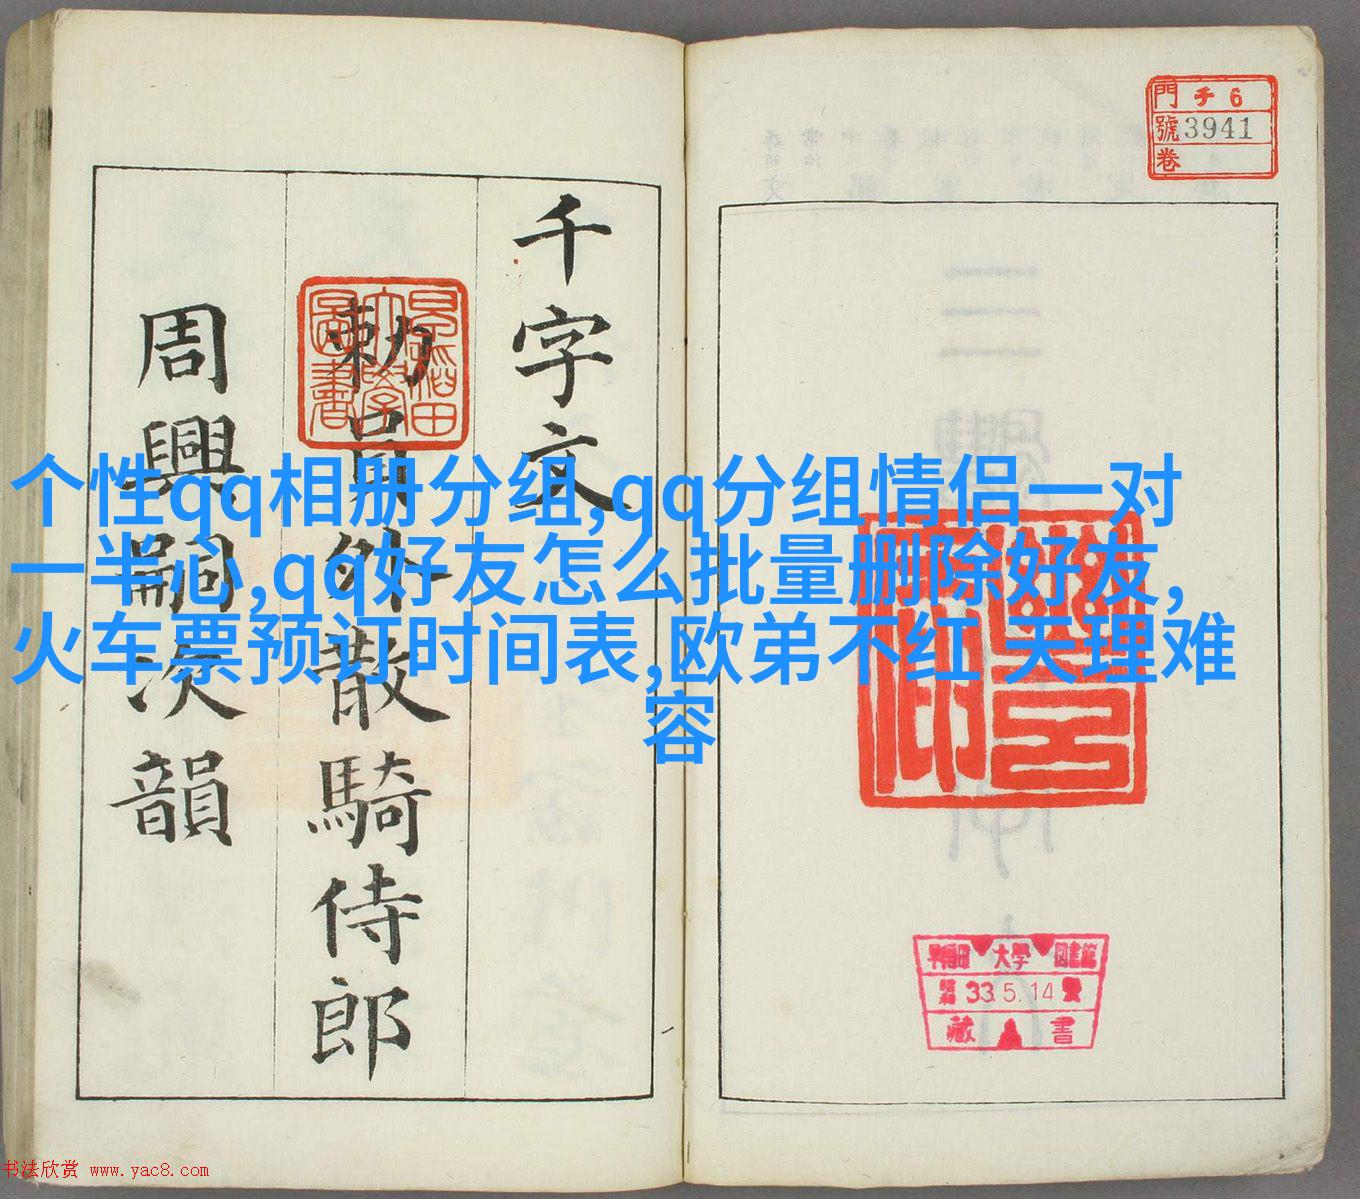 门 千 6
號 3941
卷
千字文
勅員外散騎侍郎
周興嗣次韻
早稲田大學圖書
个性qq相册分组,qq分组情侣一对
一半心,qq好友怎么批量删除好友,
火车票预订时间表,欧弟不红 天理难
容
早稲田 大學 図書館
昭和 33.5.14
藏書
书法欣赏 www.yac8.com